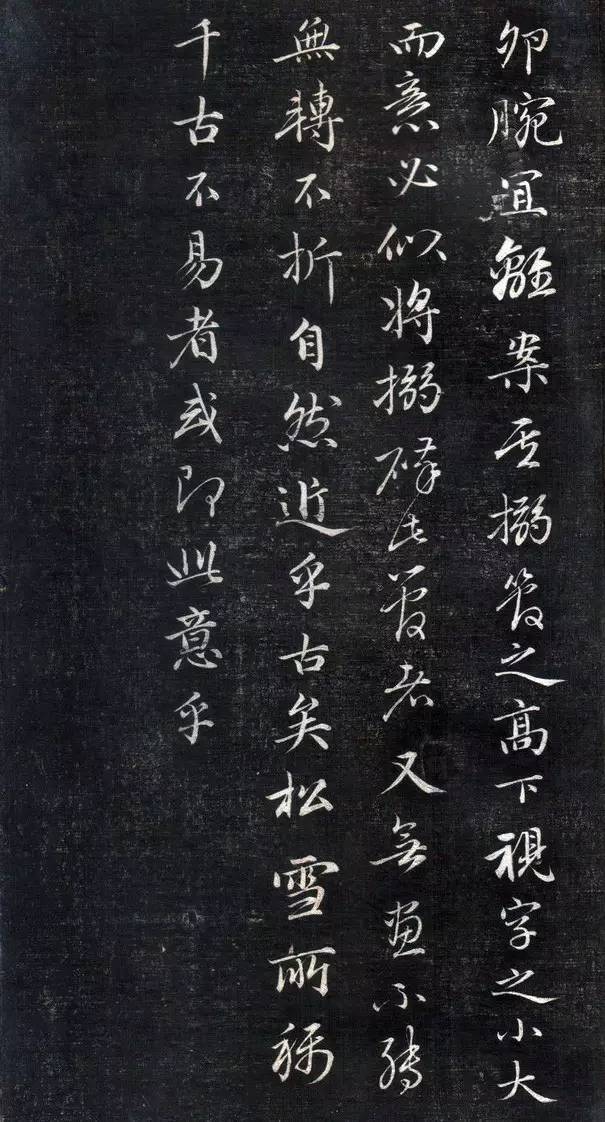 腕宜離案其搦管之高下視字之小大
而意必似将搦碎此管者又無畫不轉
無轉不折自然近乎古矣松雪所稱
千古不易者或即此意乎